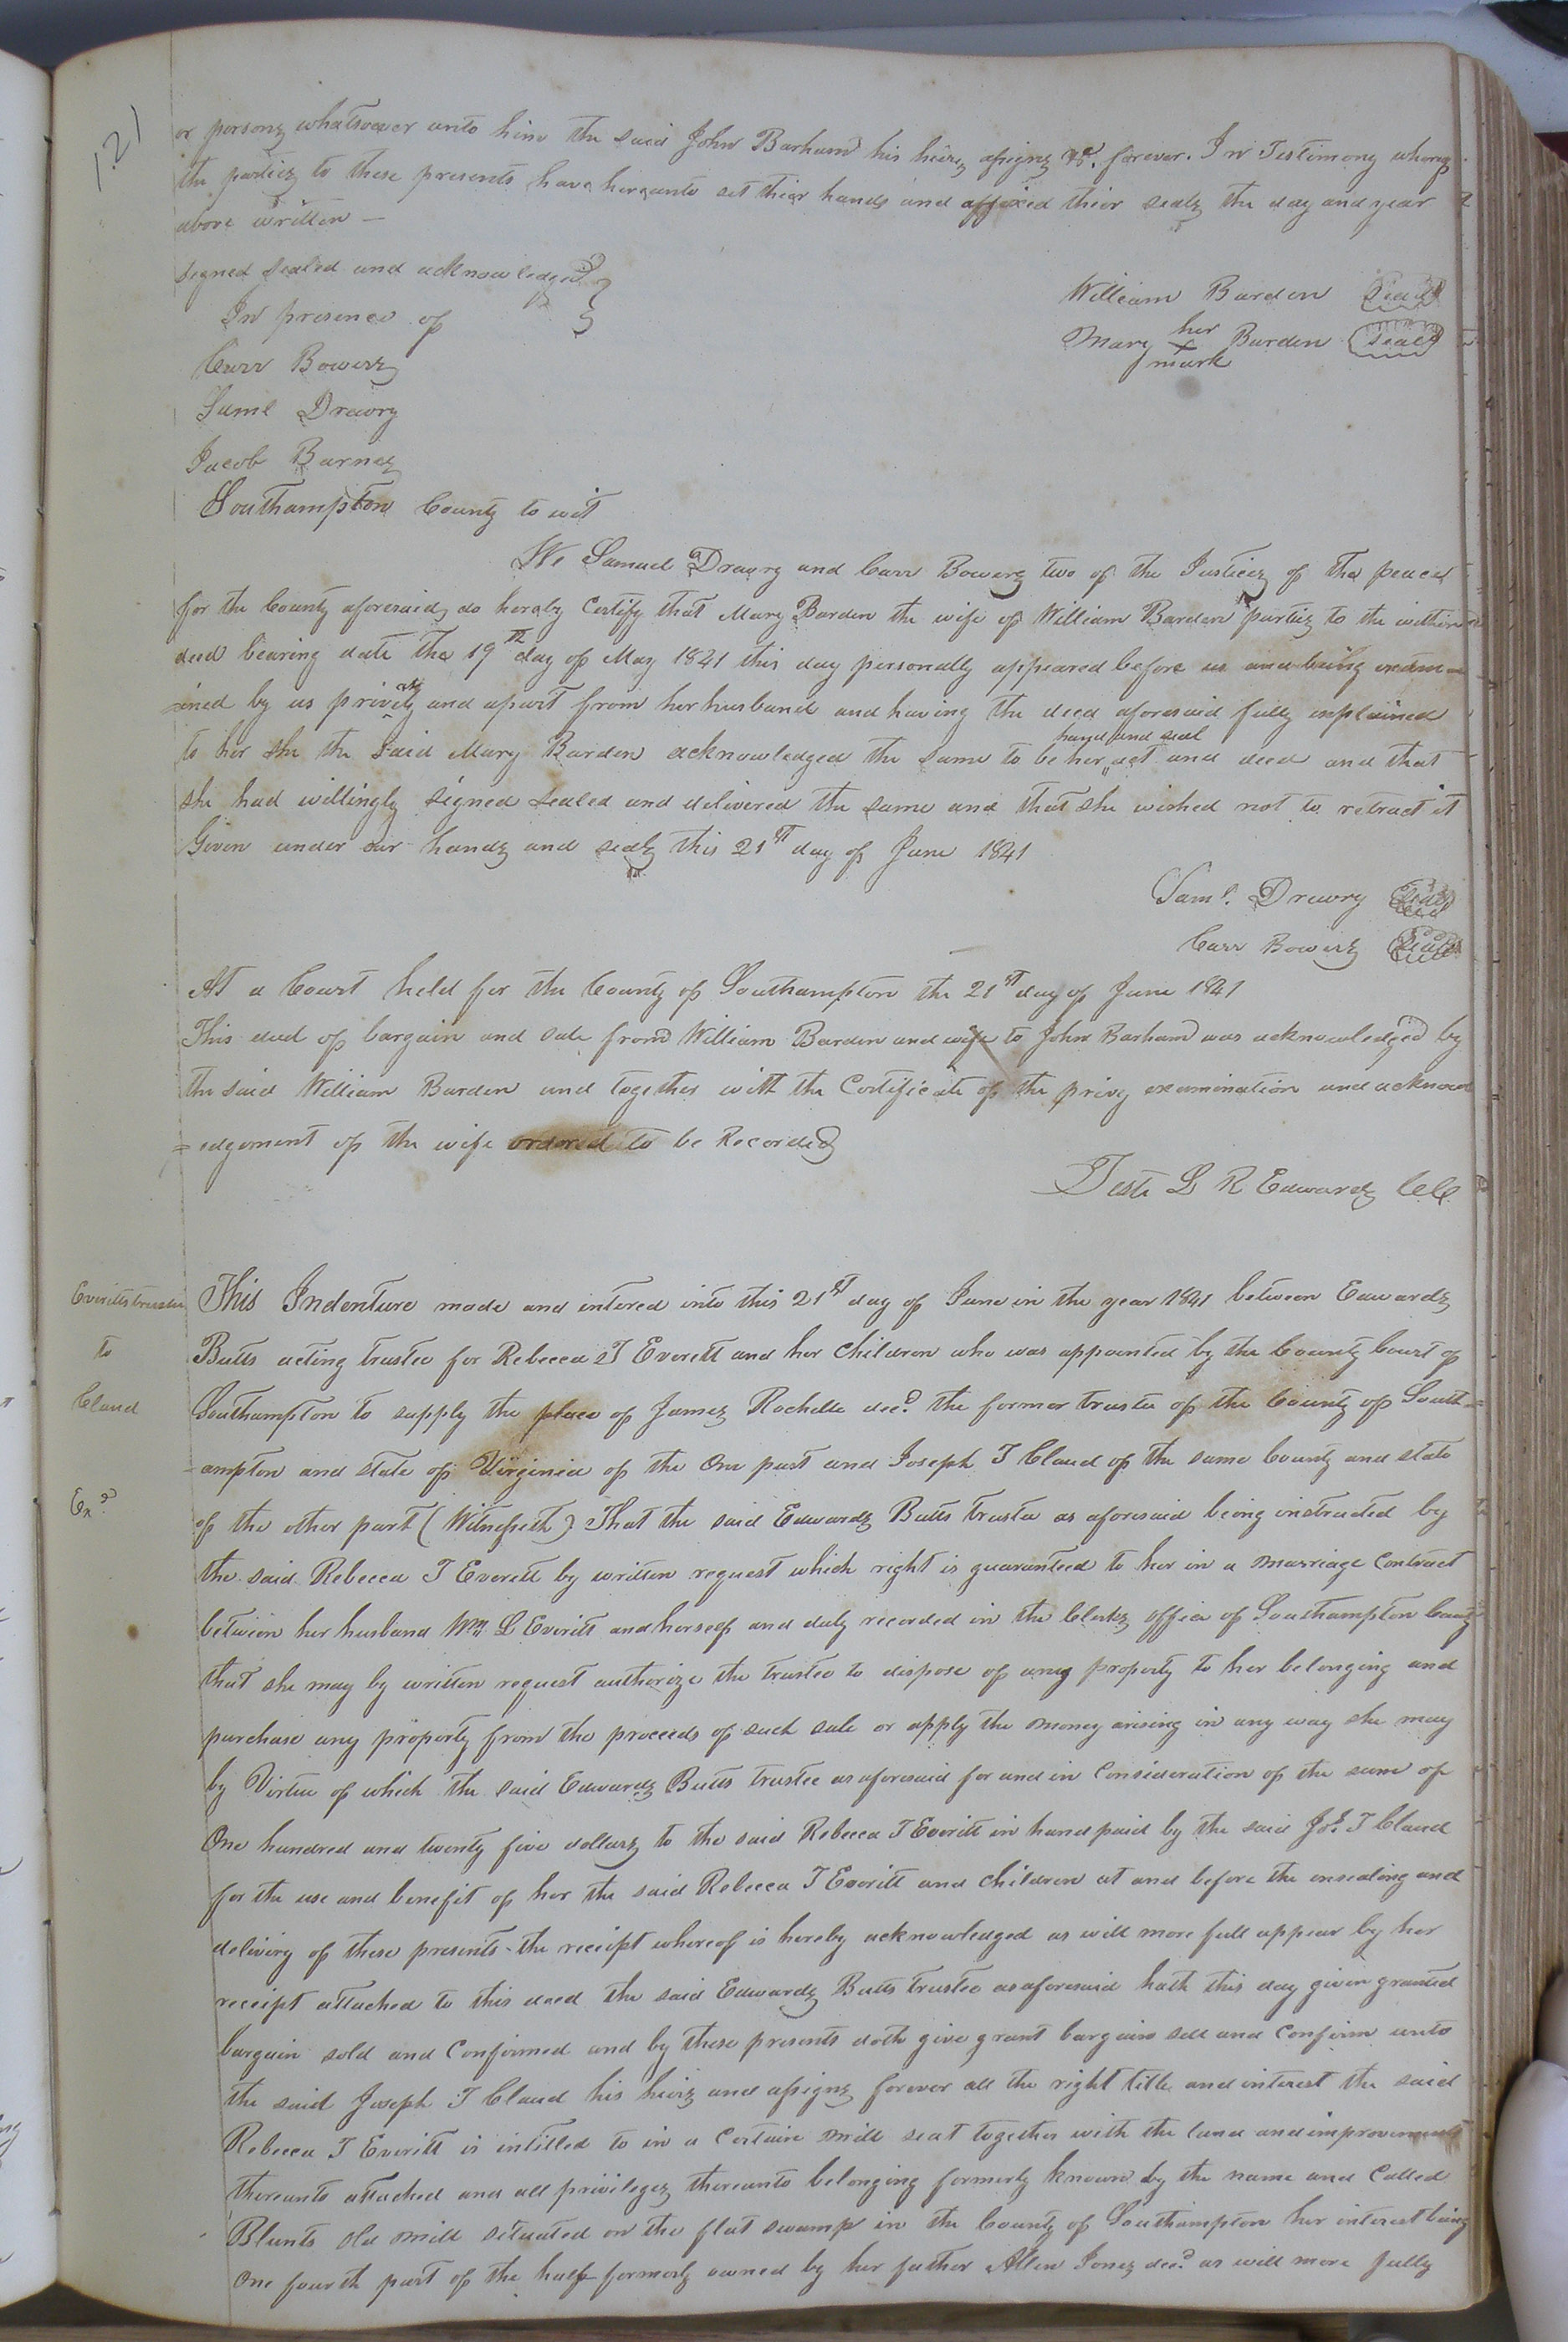 121
or persons whatsoever unto him the said John Barham his heirs assigns &c. forever. In Testimony whereof
the parties to these presents have hereunto set their hands and affixed their seals the day and year
above written —
Signed sealed and acknowledged
In presence of
William Barden Seal
Mary her X mark Barden Seal
Carr Bowers
Saml Drewry
Jacob Barnes
Southampton County to wit
We Samuel Drewry and Carr Bowers two of the Justices of the peace
for the County aforesaid, do hereby Certify that Mary Barden the wife of William Barden parties to the within
deed bearing date the 19th day of May 1841 this day personally appeared before us and being exam=
=ined by us privily and apart from her husband and having the deed aforesaid fully explained
to her she the said Mary Barden acknowledged the same to be her hand and seal act and deed and that
she had willingly signed sealed and delivered the same and that she wished not to retract it
Given under our hands and seals this 21st day of June 1841
Saml. Drewry Seal
Carr Bowers Seal
At a Court held for the County of Southampton the 21st day of June 1841
This deed of bargain and sale from William Barden and wife to John Barham was acknowledged by
the said William Barden and together with the Certificate of the privy examination and acknowl
=edgement of the wife ordered to be Recorded
Teste L R Edwards CC
Everitts trustee
to
Claud
Exd
This Indenture made and entered into this 21st day of June in the year 1841 between Edwards
Butts acting trustee for Rebecca T Everitt and her Children who was appointed by the County Court of
Southampton to supply the place of James Rochelle decd. the former trustee of the County of South=
=ampton and state of Virginia of the One part and Joseph T Claud of the same County and state
of the other part (Witnesseth) That the said Edwards Butts trustee as aforesaid being instructed by
the said Rebecca T Everitt by written request which right is guaranteed to her in a marriage Contract
between her husband Wm L Everitt and herself and duly recorded in the Clerks office of Southampton County
that she may by written request authorize the trustee to dispose of any property to her belonging and
purchase any property from the proceeds of such sale or apply the money arising in any way she may
by Virtue of which the said Edwards Butts trustee as aforesaid for and in Consideration of the sum of
One hundred and twenty five dollars to the said Rebecca T Everitt in hand paid by the said Jos. T Claud
for the use and benefit of her the said Rebecca T Everitt and children at and before the ensealing and
delivery of these presents the receipt whereof is hereby acknowledged as will more full appear by her
receipt attached to this deed the said Edwards Butts trustee as aforesaid hath this day given granted
bargain sold and Confirmed and by these presents doth give grant bargain sell and Confirm unto
the said Joseph T Claud his heirs and assigns forever all the right title and interest the said
Rebecca T Everitt is intitled to in a Certain mill seat together with the land and improvements
thereunto attached and all privileges thereunto belonging formerly known by the name and Called
Blunts old mill situated on the flat swamp in the County of Southampton her interest being
One fourth part of the half formerly owned by her father Allen Jones decd. as will more fully